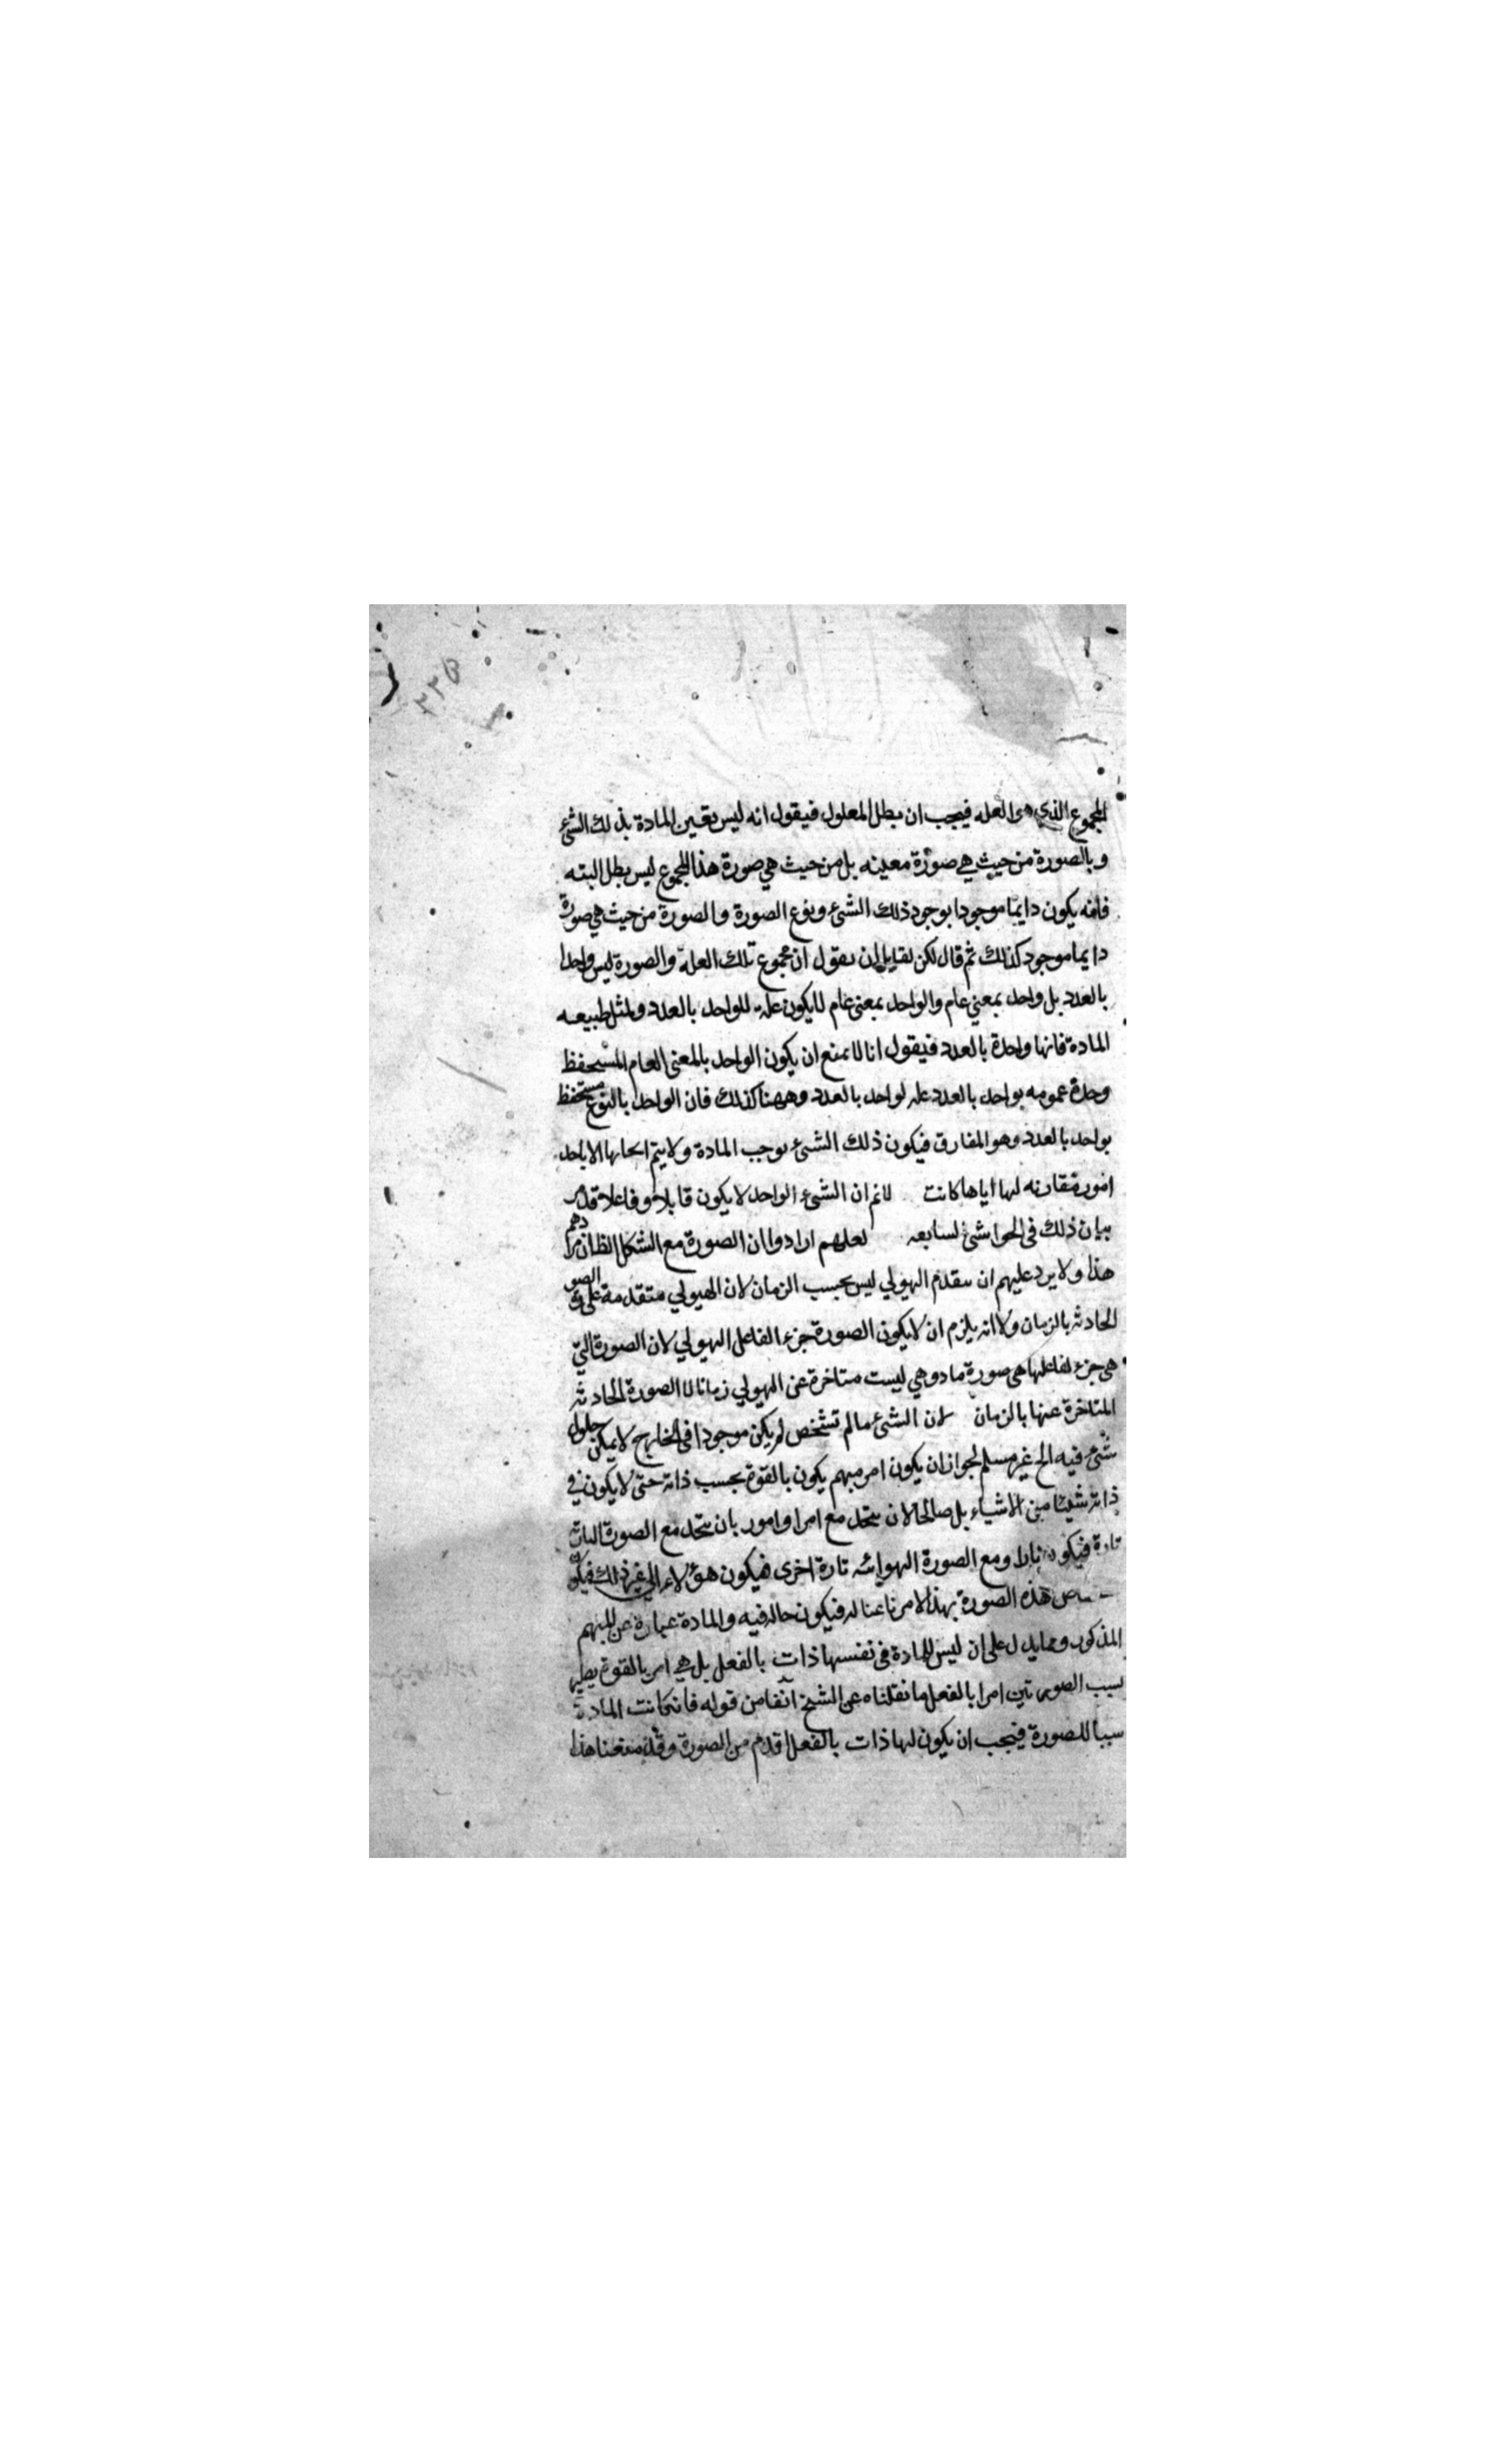 ٢٢٥
المجموع الذى هى العله فيجب ان يبطل المعلول فيقول انه ليس تعين المادة بذلك الشئ
وبالصورة من حيث هي صورة معينه بل من حيث هي صورة هذا المجموع ليس يبطل البته
فانه يكون دايما موجودا بوجود ذلك الشئ ونوع الصورة والصورة من حيث هي صورة
دايما موجود كذلك ثم قال لكن لقايل ان يقول ان مجموع تلك العله والصورة ليس واحدا
بالعدد بل واحد بمعني عام والواحد بمعنى عام لا يكون علة للواحد بالعدد ولمثل طبيعه
المادة فانها واحدة بالعدد فيقول انا لا نمنع ان يكون الواحد بالمعنى العام المستحفظ
وحدة عمومه بواحد بالعدد عله لواحد بالعدد وههنا كذلك فان الواحد بالنوع مستحفظ
بواحد بالعدد وهو المفارق فيكون ذلك الشئ يوجب المادة ولا يتم ايجابها الا باحد
امور مقارنه لها اياها كانت لانم ان الشئ الواحد لا يكون قابلا وفاعلا قد مر
بيان ذلك فى الحواشى السابعه لعلهم ارادوا ان الصورة مع الشكل الظاهر مرادهم
هذا ولا يرد عليهم ان تقدم الهيولي ليس بحسب الزمان لان الهيولي متقدمة على الصورة
الحادثه بالزمان ولا انه يلزم ان لا يكون الصورة جزء الفاعل الهيولي لان الصورة التي
هى جزء لفاعلها هى صورة ما وهي ليست متاخرة عن الهيولي زمانا لا الصورة الحادثه
المتاخرة عنها بالزمان لان الشئ مالم تشخص لم يكن موجودا فى الخارج لا يمكن حلول
شئ فيه الخ غير مسلم لجواز ان يكون امر مبهم يكون بالقوة بحسب ذاته حتى لا يكون في
ذاته شيئا من الاشياء بل صالحا لان يتحد مع امر وامور بان يتحد مع الصورة الناريه
تارة فيكون نارا ومع الصورة الهوائيه تارة اخرى فيكون هواء الى غير ذلك فيكون
هذه الصورة بهذا الامر ناعتا له فيكون حاله فيه والمادة عبارة عن المبهم
المذكور ومما يدل على ان ليس للمادة فى نفسها ذات بالفعل بل هي امر بالقوة يصير
بسبب الصورتين امرا بالفعل ما نقلناه عن الشيخ آنفا من قوله فان كانت المادة
سببا للصورة فيجب ان يكون لها ذات بالفعل اقدم من الصورة وقد منعنا هذا